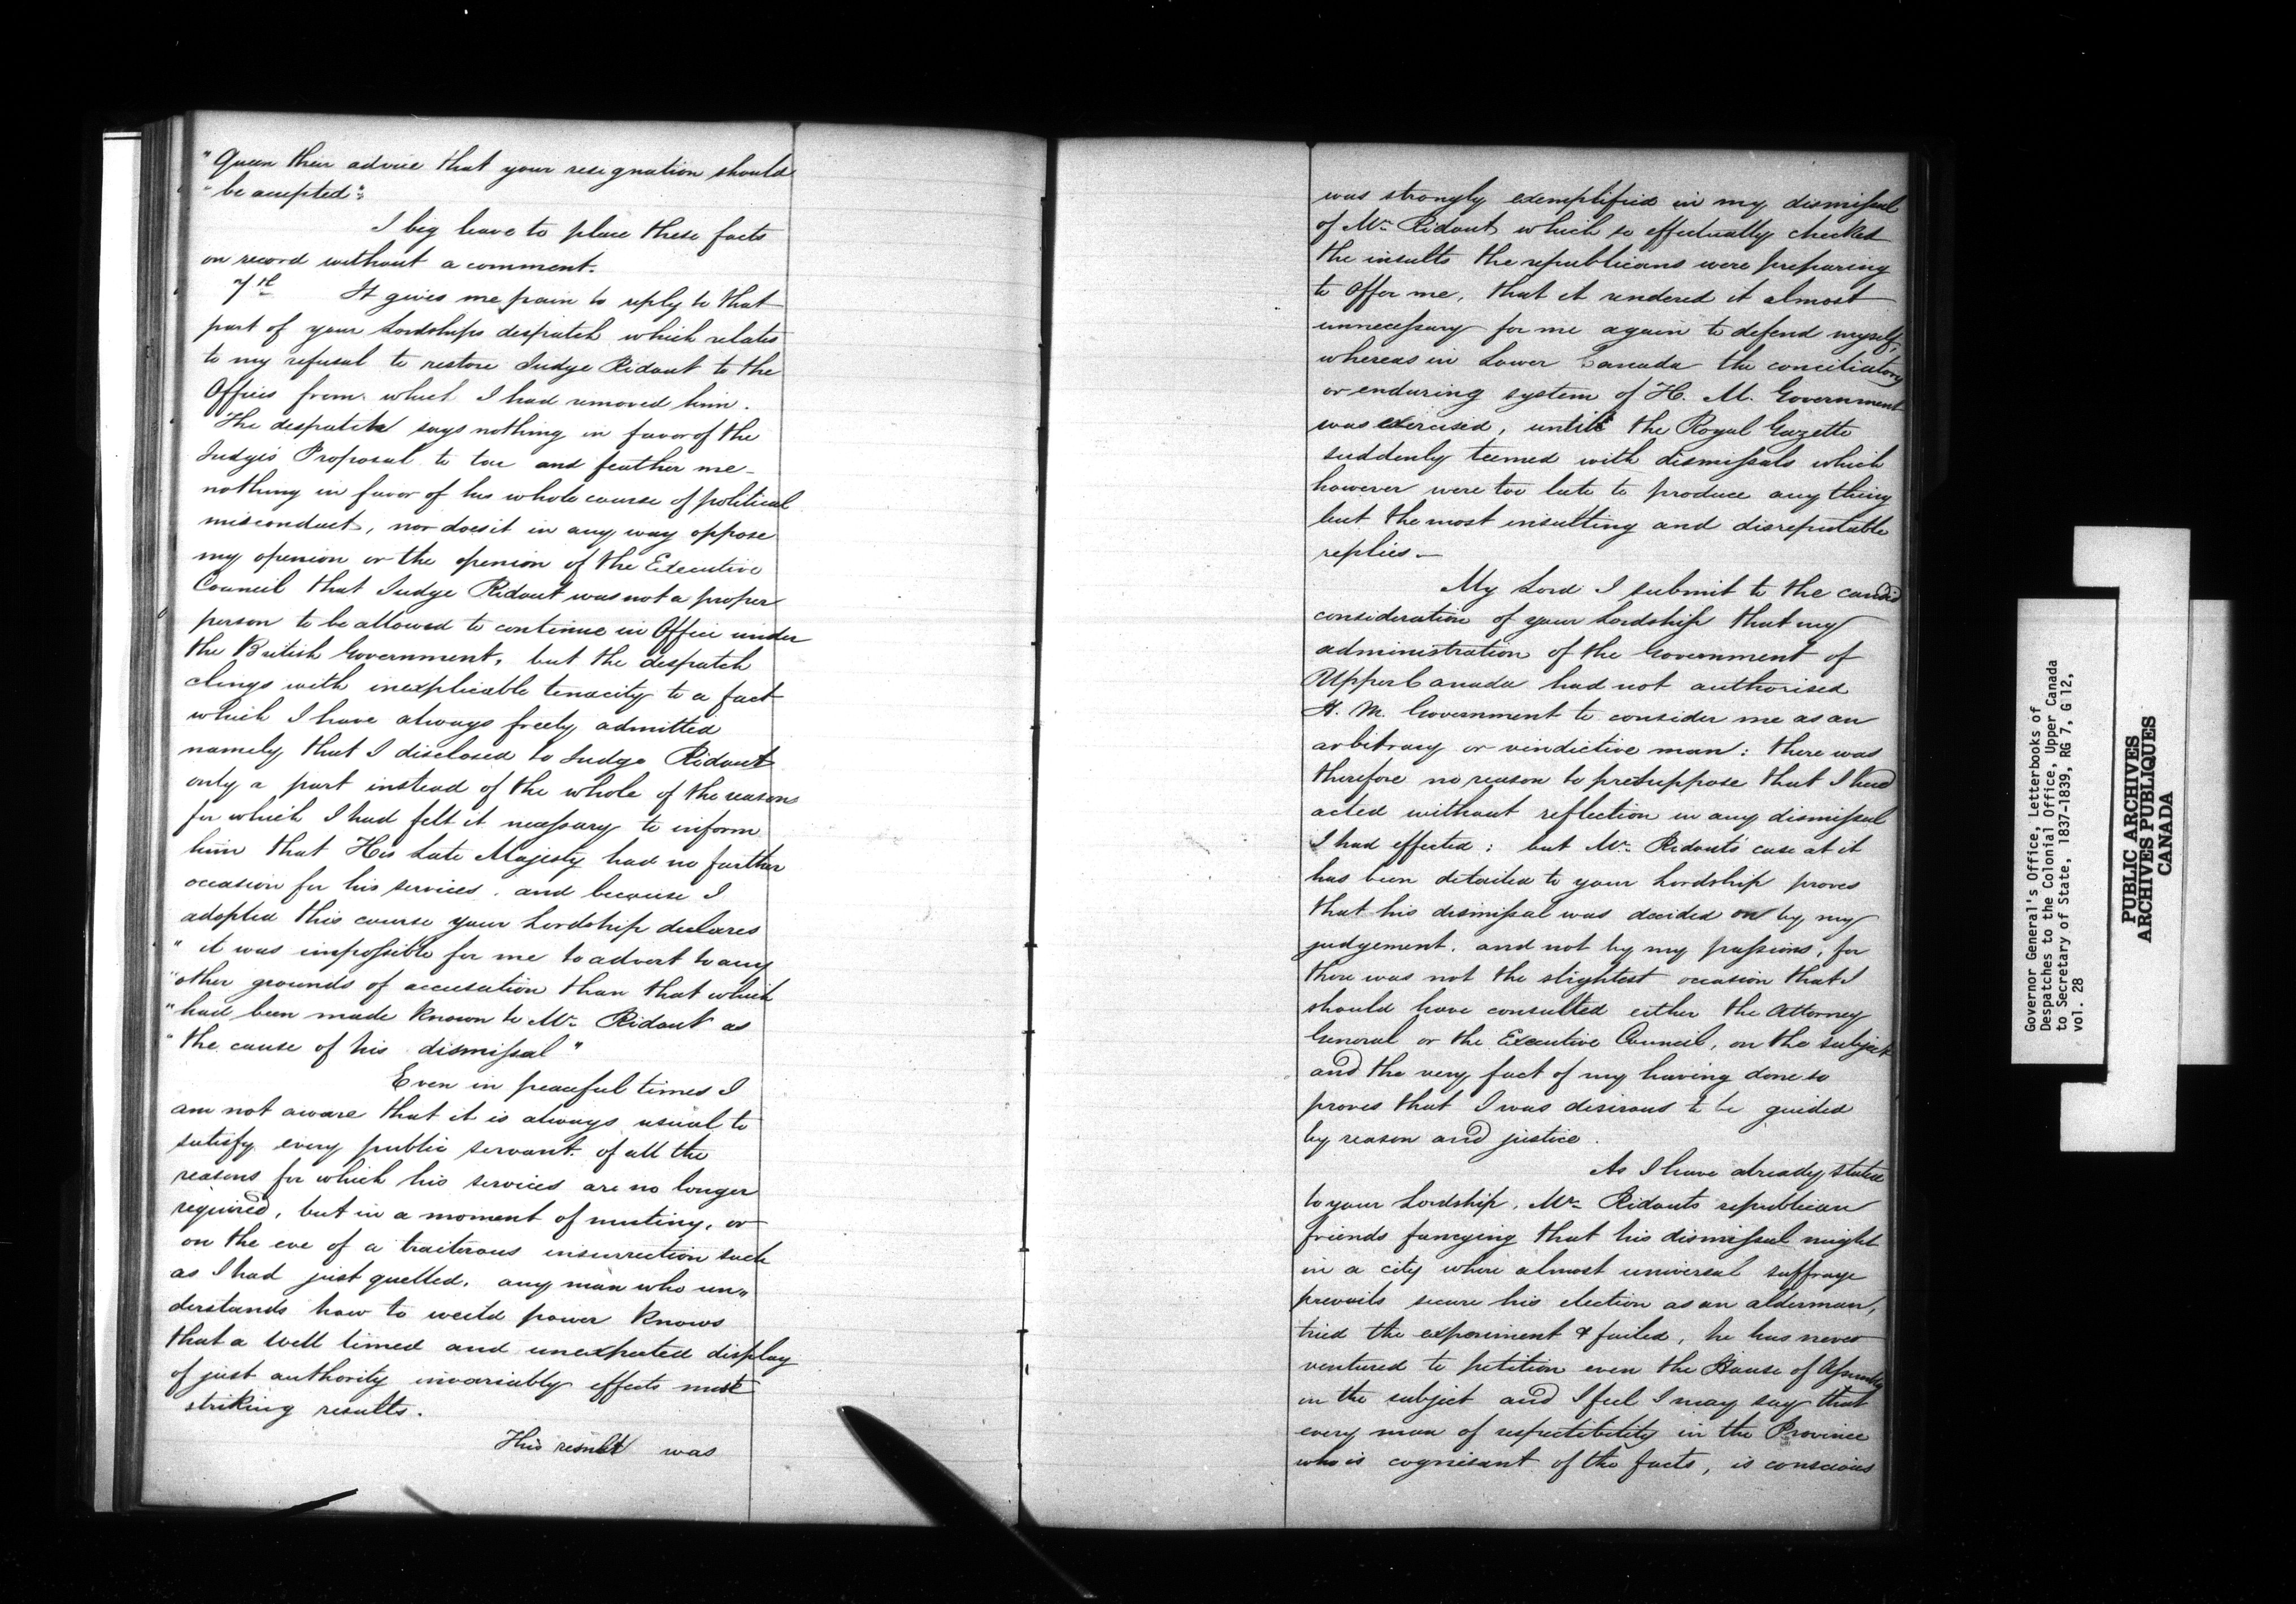 "Queen their advice that your resignation should
"be accepted":
I beg leave to place these facts
on record without a comment.
7th It gives me pain to reply to that
part of your Lordships despatch which relates
to my refusal to restore Judge Ridout to the
Offices from which I had removed him.
The despatch says nothing in favor of the
Judges Proposal to tar and feather me -
nothing in favor of his whole course of political
misconduct, nor does it in any way oppose
my openion or the openion of the Executive
Council that Judge Ridout was not a proper
person to be allowed to continue in Office under
the British Government, but the despatch
clings with inexplicable tenacity to a fact
which I have always freely admitted
namely that I disclosed to Judge Ridout
only a part instead of the whole of the reasons
for which I had felt it necessary to inform
him that His Late Majesty had no further
occasion for his services. and because I
adopted this course your Lordship declares
"it was impossible for me to advert to any
"other grounds of accusation than that which
"had been made known to Mr. Ridout as
"the cause of his dismissal"
Even in peaceful times I
am not aware that it is always usual to
satisfy every public servant of all the
reasons for which his services are no longer
required, but in a moment of mutiny, or
on the eve of a traiterous insurrection such
as I had just quelled, any man who un"
derstands how to weild power knows
that a well timed and unexpected display
of just authority invariably effects most
striking results.
This result was
was strongly exemplified in my dismissal
of Mr. Ridout which so effectually checked
the insults the republicans were preparing
to Offer me, that it rendered it almost
unnecessary for me again to defend myself,
whereas in Lower Canada the conciliatory
or enduring system of H. M. Government
was exercised, until the Royal Gazette
suddenly teemed with dismissals which
however were too late to produce any thing
but the most insulting and disreputable
replies. -
My Lord I submit to the candid
consideration of your Lordship that my
administration of the Government of
Upper Canada had not authorised
H. M. Government to consider me as an
arbitrary or vindictive man: there was
therefore no reason to presuppose that I had
acted without reflection in any dismissal
I had effected: but Mr. Ridout's case at it
has been detailed to your Lordship proves
that his dismissal was decided on by my
judgement. and not by my passions, for
there was not the slightest occasion that I
should have consulted either the Attorney
General or the Executive Council, on the subject
and the very fact of my having done so
proves that I was desirous to be guided
by reason and justice.
As I have already stated
to your Lordship, Mr. Ridouts republican
friends fancying that his dismissal might
in a city where almost universal suffrage
prevails secure his election as an alderman,
tried the experiment & failed, he has never
ventured to petition even the House of Assembly
on the subject and I feel I may say that
every man of respectibility in the Province
who is cognisant of the facts, is conscious
Governor General's Office, Letterbooks of
Despatches to the Colonial Office, Upper Canada
to Secretary of State, 1837-1839, RG 7, G 12,
vol. 28
PUBLIC ARCHIVES
ARCHIVES PUBLIQUES
CANADA